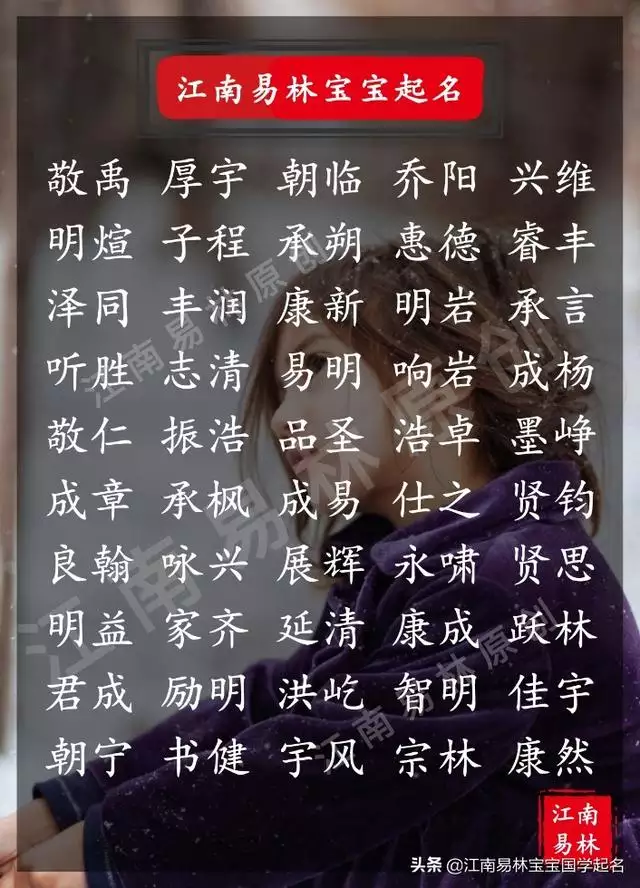 江南易林宝宝起名
敬禹 厚宇 朝临 乔阳 兴维
明煊 子程 承朔 惠德 睿丰
泽同 丰润 康新 明岩 承言
听胜 志清 易明 响岩 成杨
敬仁 振浩 品圣 浩卓 墨峥
成章 承枫 成易 仕之 贤钧
良翰 咏兴 展辉 永啸 贤思
明益 家齐 延清 康成 跃林
君成 励明 洪屹 智明 佳宇
朝宁 书健 宇风 宗林 康然
江南易林原创
江南易林原创
江南易林原创
江南
易林
头条 @江南易林宝宝国学起名